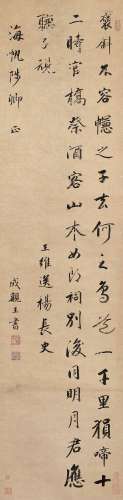 褒斜不容幰之子去何之鳥道一千里猿啼十
二時官橋祭酒客山木女郎祠別後同明月君應
聽子規
王維送楊長史
海帆陟卿 正
成親王書